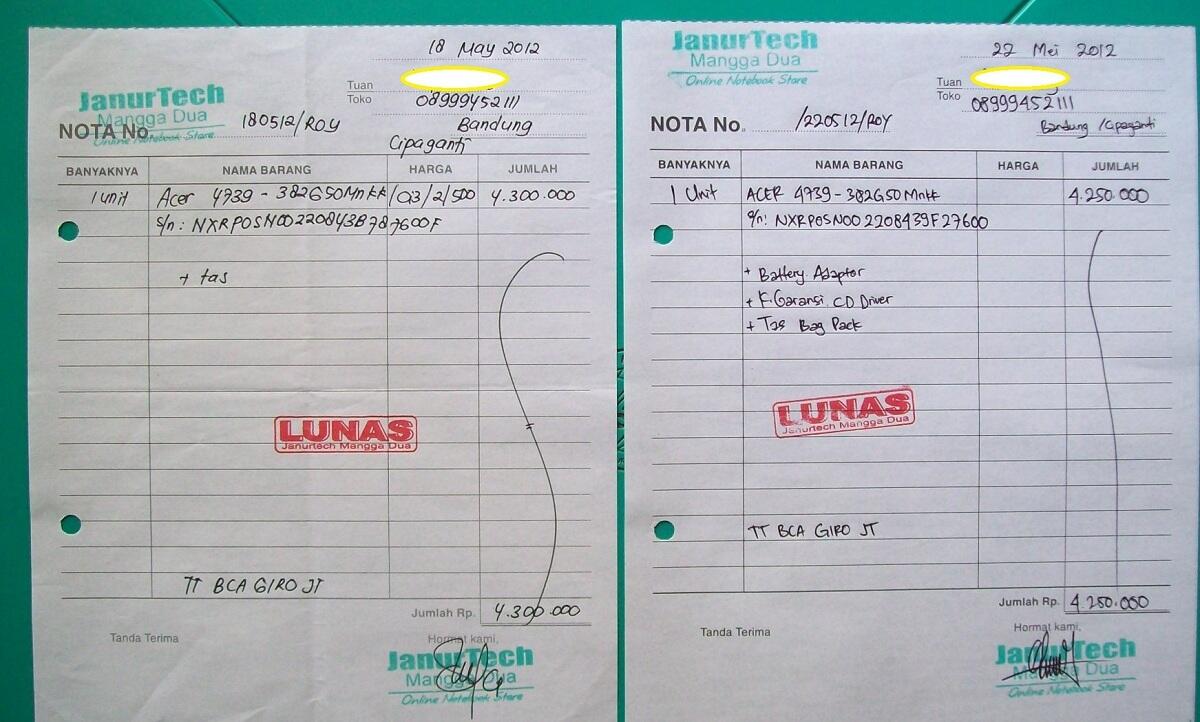 18 May 2012
JanurTech
Mangga Dua
Online Notebook Store
Tuan
Toko
08999452111
NOTA No.
180512/ROY
Bandung
Cipaganti
BANYAKNYA NAMA BARANG HARGA JUMLAH
1 unit Acer 4739 - 382G50Mnkk/Ci3/2/500 4.300.000
S/n: NXRPOSN00220843B787600F
+ tas
LUNAS
Janurtech Mangga Dua
TT BCA GIRO JT
Jumlah Rp. 4.300.000
Tanda Terima
Hormat kami,
JanurTech
Mangga Dua
Online Notebook Store
JanurTech
Mangga Dua
Online Notebook Store
22 Mei 2012
Tuan
Toko
08999452111
NOTA No. /220512/ROY
Bandung /Cipaganti
BANYAKNYA NAMA BARANG HARGA JUMLAH
1 Unit ACER 4739-382G50Mnkk 4.250.000
S/n: NXRPOSN002208439F27600
+ Battery Adaptor
+ K.Garansi CD Driver
+ Tas Bag Pack
LUNAS
Janurtech Mangga Dua
TT BCA GIRO JT
Jumlah Rp. 4.250.000
Tanda Terima
Hormat kami,
JanurTech
Mangga Dua
Online Notebook Store